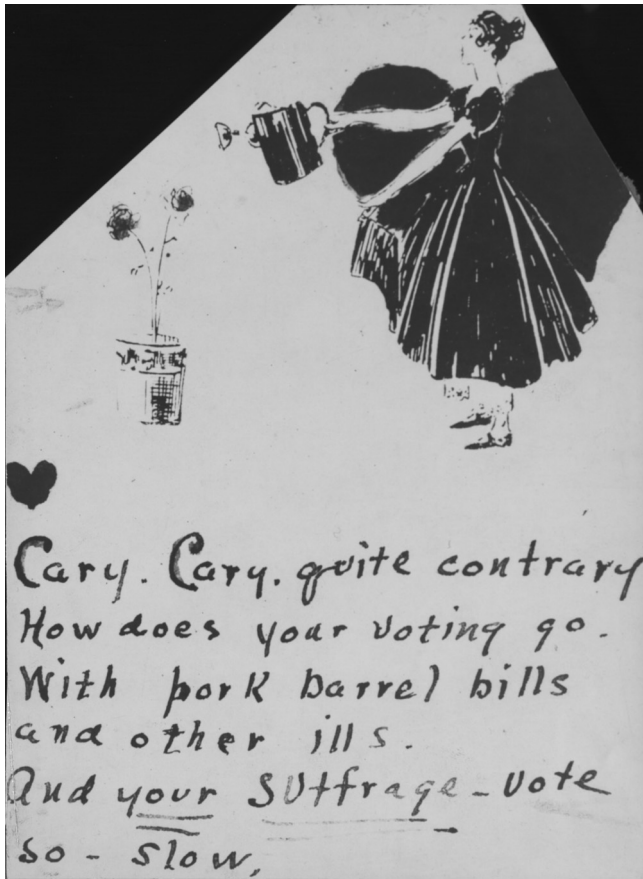 Cary. Cary. quite contrary
How does your voting go.
With pork barrel bills
and other ills.
And your suffrage - vote
so - slow.